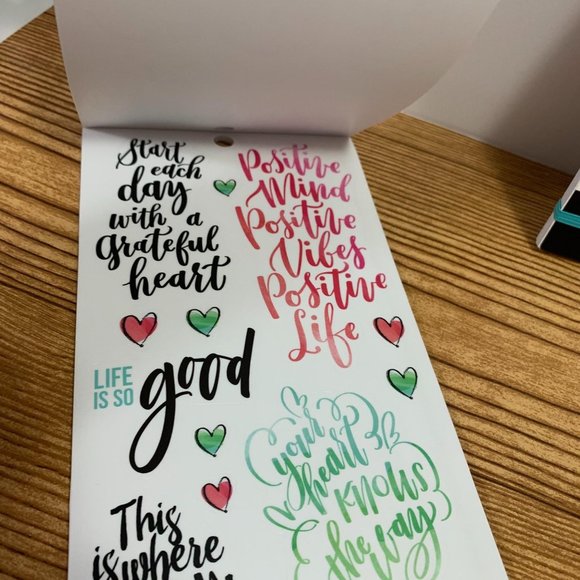 Start
each
day
with a
grateful
heart
Positive
Mind
Positive
Vibes
Positive
Life
LIFE
IS SO
good
your
heart
knows
the way
This
is where